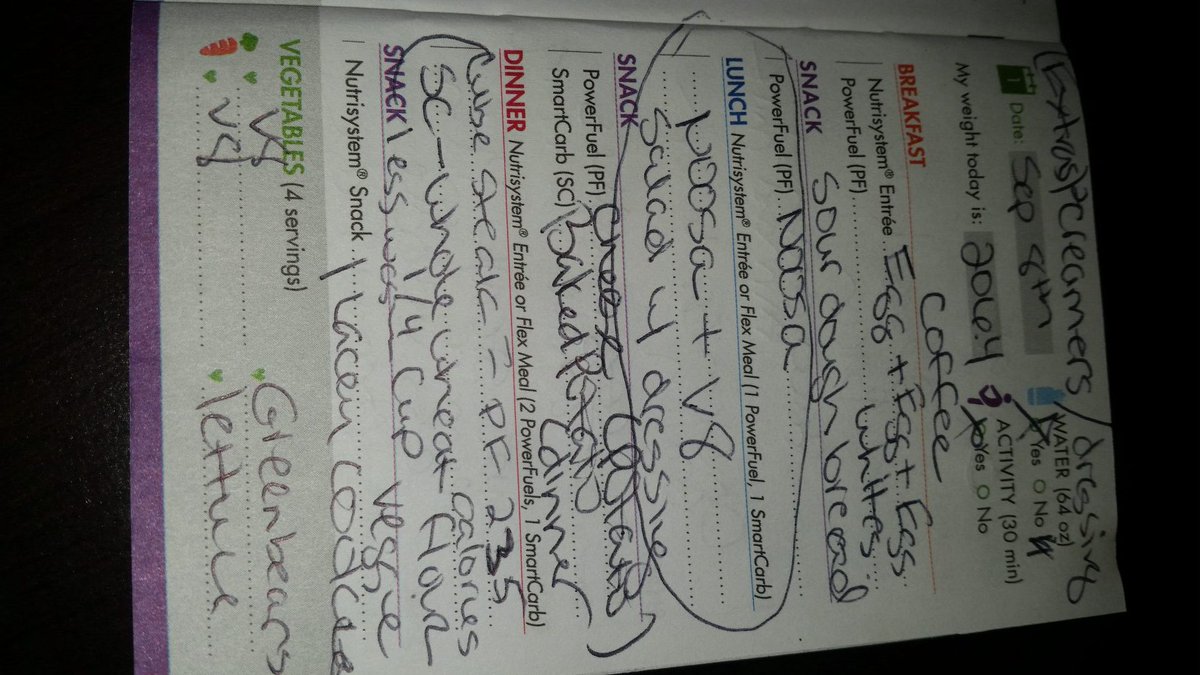 (Extras) creamers/dressing
1 Date: Sep 8th
WATER (64 oz)
Yes No
My weight today is: 206.4
ACTIVITY (30 min)
Yes No
coffee
BREAKFAST
Nutrisystem® Entrée Egg + Egg + Egg
PowerFuel (PF) whites
sourdough bread
SNACK
PowerFuel (PF) Noosa
LUNCH Nutrisystem® Entrée or Flex Meal (1 PowerFuel, 1 SmartCarb)
noosa + V8
salad w dressing
SNACK
PowerFuel (PF) cheese
SmartCarb (SC) Baked Potato
dinner
DINNER Nutrisystem® Entrée or Flex Meal (2 PowerFuels, 1 SmartCarb)
Cube steak = PF 235
calories
SC - whole wheat flour
less was 1/4 cup
SNACK
Nutrisystem® Snack
VEGETABLES (4 servings)
V8 Greenbeans
V8 lettuce